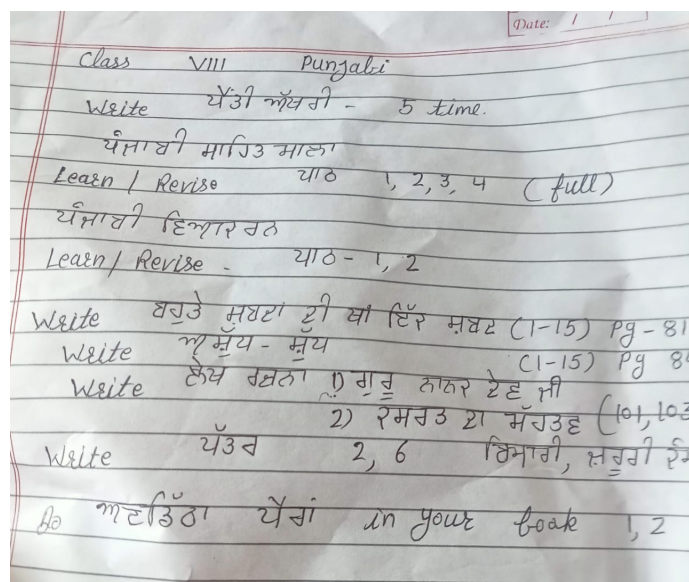 Date: / /
Class VIII Punjabi
Write ਪੈਂਤੀ ਅੱਖਰੀ - 5 time.
ਪੰਜਾਬੀ ਸਾਹਿਤ ਮਾਲਾ
Learn / Revise ਪਾਠ 1, 2, 3, 4 (full)
ਪੰਜਾਬੀ ਵਿਆਕਰਨ
Learn / Revise - ਪਾਠ - 1, 2
Write ਬਹੁਤੇ ਸ਼ਬਦਾਂ ਦੀ ਥਾਂ ਇੱਕ ਸ਼ਬਦ (1-15) Pg - 81
Write ਅਸ਼ੁੱਧ - ਸ਼ੁੱਧ (1-15) Pg
Write ਲੇਖ ਰਚਨਾ 1) ਗੁਰੂ ਨਾਨਕ ਦੇਵ ਜੀ
2) ਕਸਰਤ ਦਾ ਮਹੱਤਵ (101, 103
Write ਪੱਤਰ 2, 6 ਬਿਮਾਰੀ, ਜ਼ਰੂਰੀ
Do ਅਣਡਿੱਠਾ ਪੈਰਾਂ in your book 1, 2